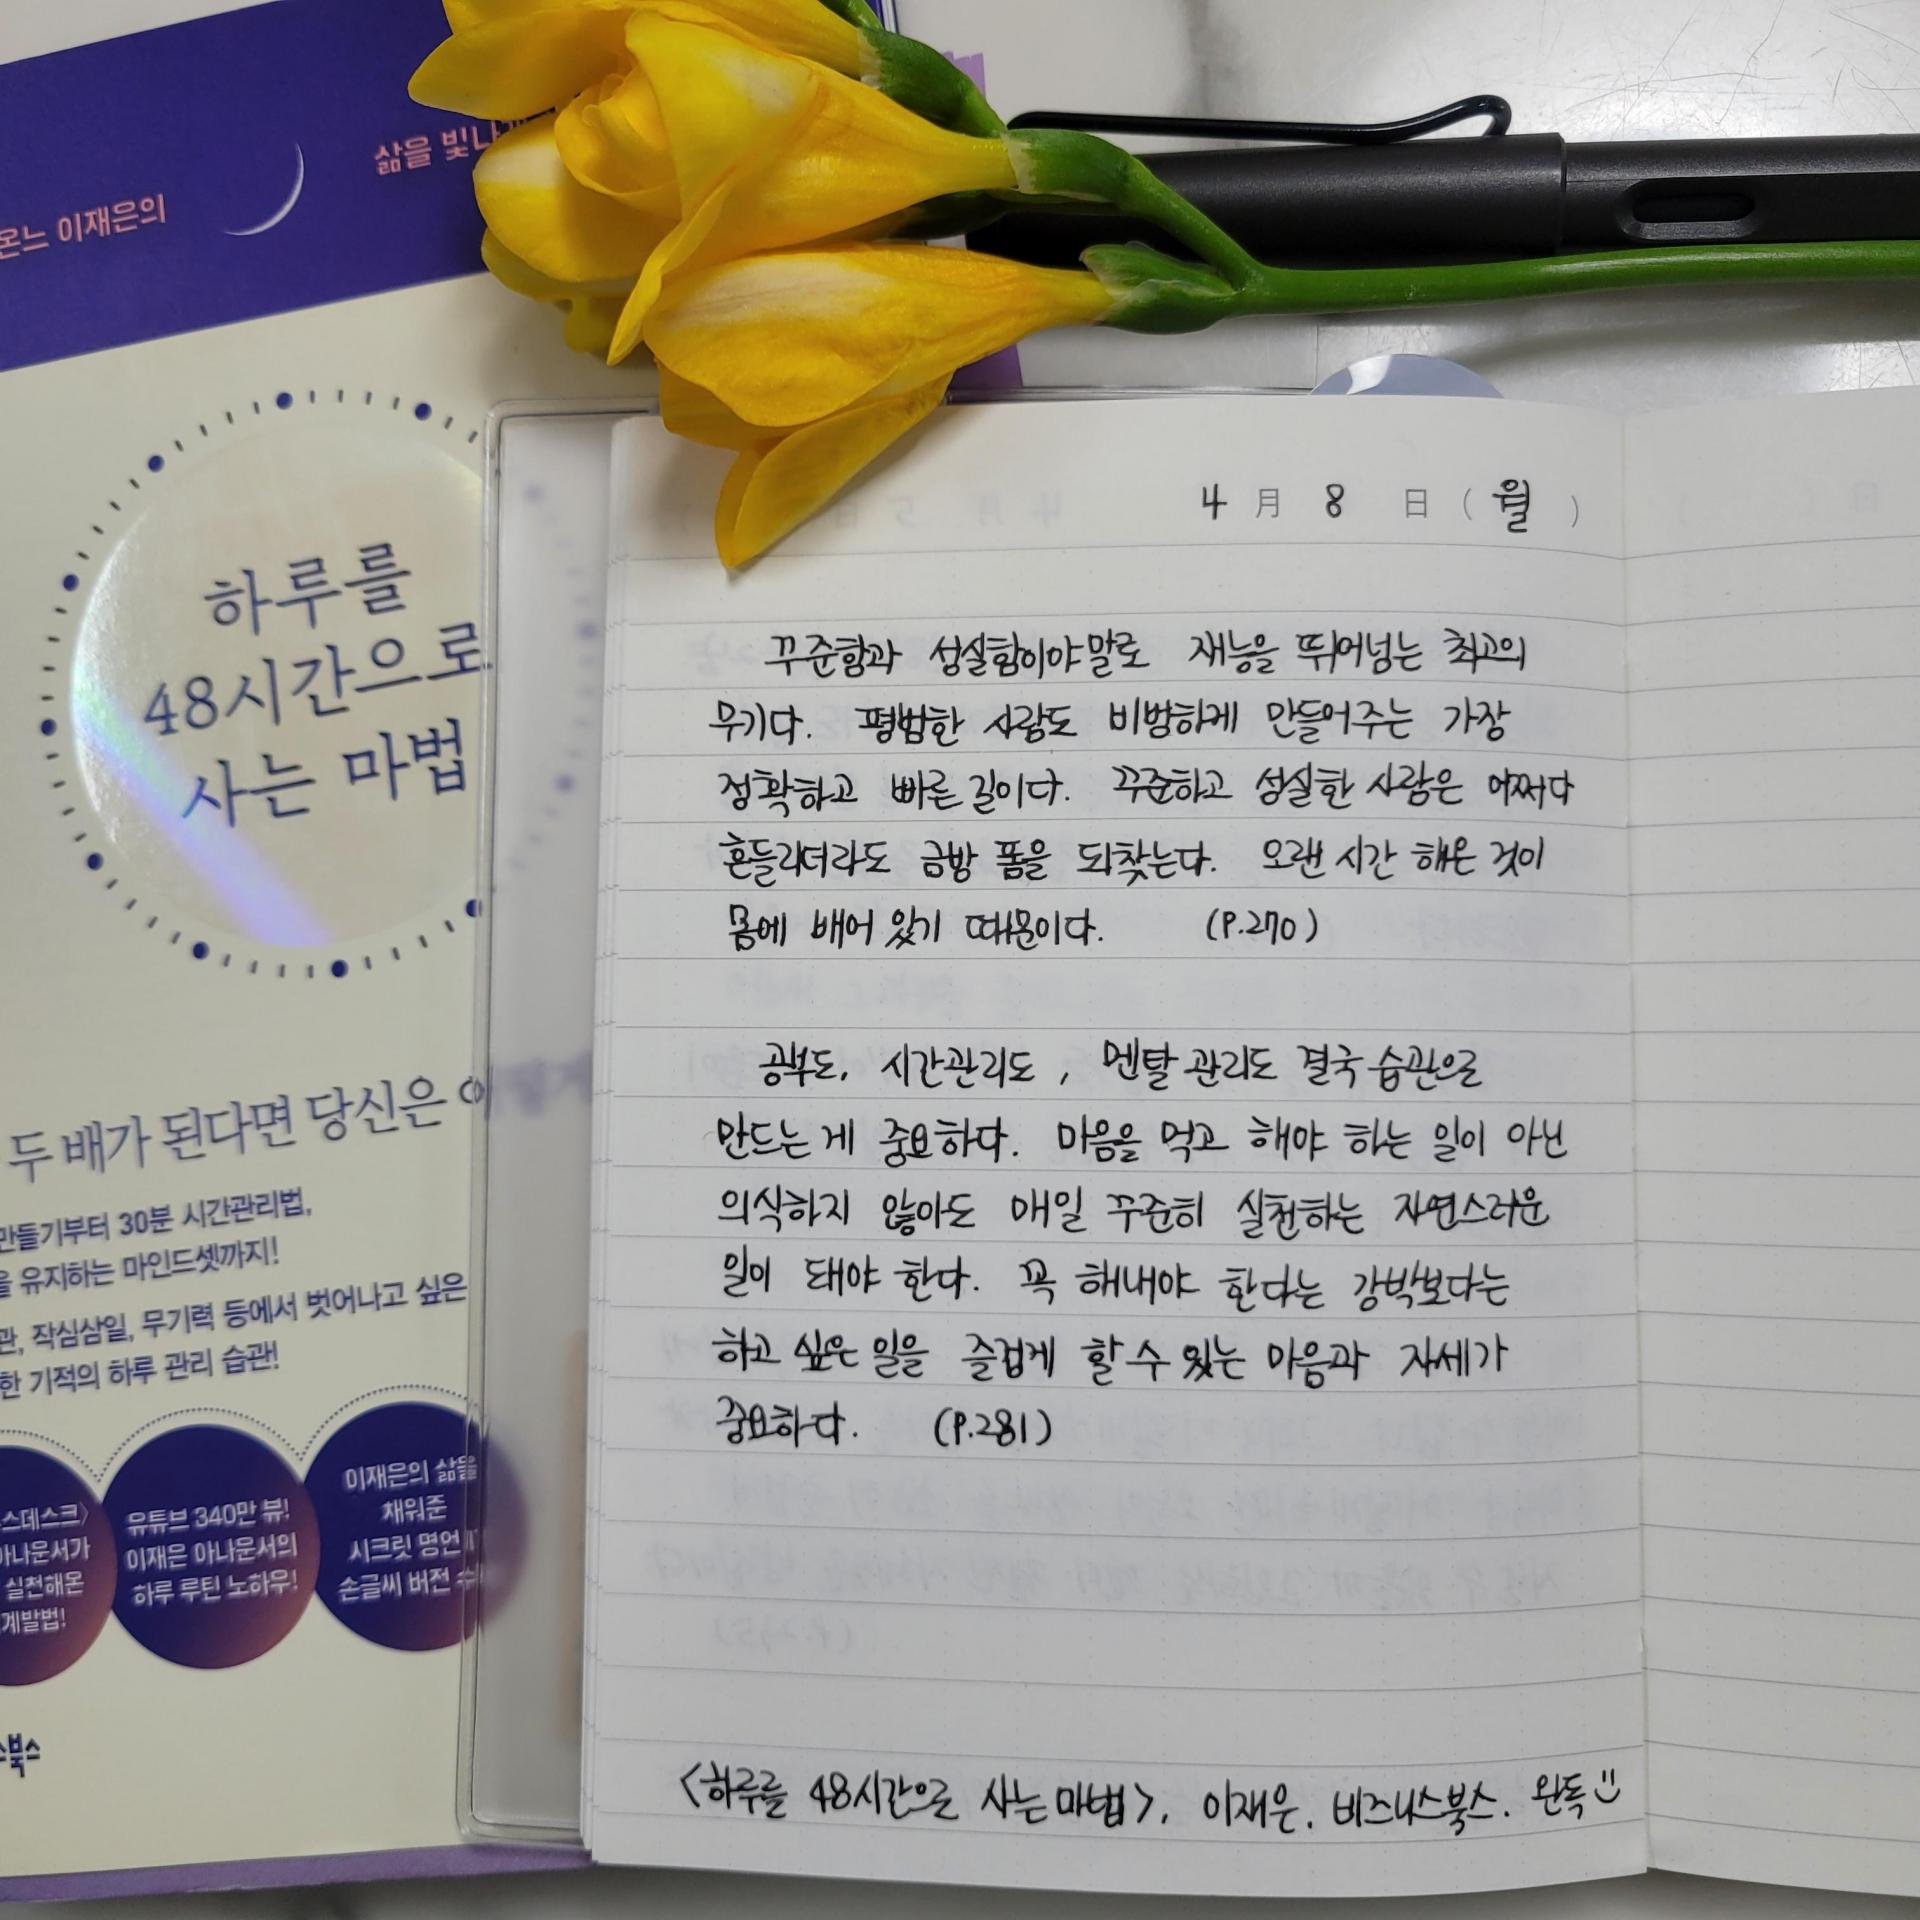 온느 이재은의
삶을 빛나
하루를
48시간으로
사는 마법
두 배가 된다면 당신은
만들기부터 30분 시간관리법,
유지하는 마인드셋까지!
작심삼일, 무기력 등에서 벗어나고 싶은
한 기적의 하루 관리 습관!
스데스크〉
아나운서가
실천해온
계발법!
유튜브 340만 뷰!
이재은 아나운서의
하루 루틴 노하우!
이재은의 삶을
채워준
시크릿 명언
손글씨 버전
스북스
4 月 8 日 ( 월 )
꾸준함과 성실함이야말로 재능을 뛰어넘는 최고의
무기다. 평범한 사람도 비범하게 만들어주는 가장
정확하고 빠른 길이다. 꾸준하고 성실한 사람은 어쩌다
흔들리더라도 금방 폼을 되찾는다. 오랜 시간 해온 것이
몸에 배어 있기 때문이다. (P.270)
공부도, 시간관리도, 멘탈 관리도 결국 습관으로
만드는 게 중요하다. 마음을 먹고 해야 하는 일이 아닌
의식하지 않아도 매일 꾸준히 실천하는 자연스러운
일이 돼야 한다. 꼭 해내야 한다는 강박보다는
하고 싶은 일을 즐겁게 할 수 있는 마음과 자세가
중요하다. (P.281)
<하루를 48시간으로 사는 마법>, 이재은. 비즈니스북스. 완독